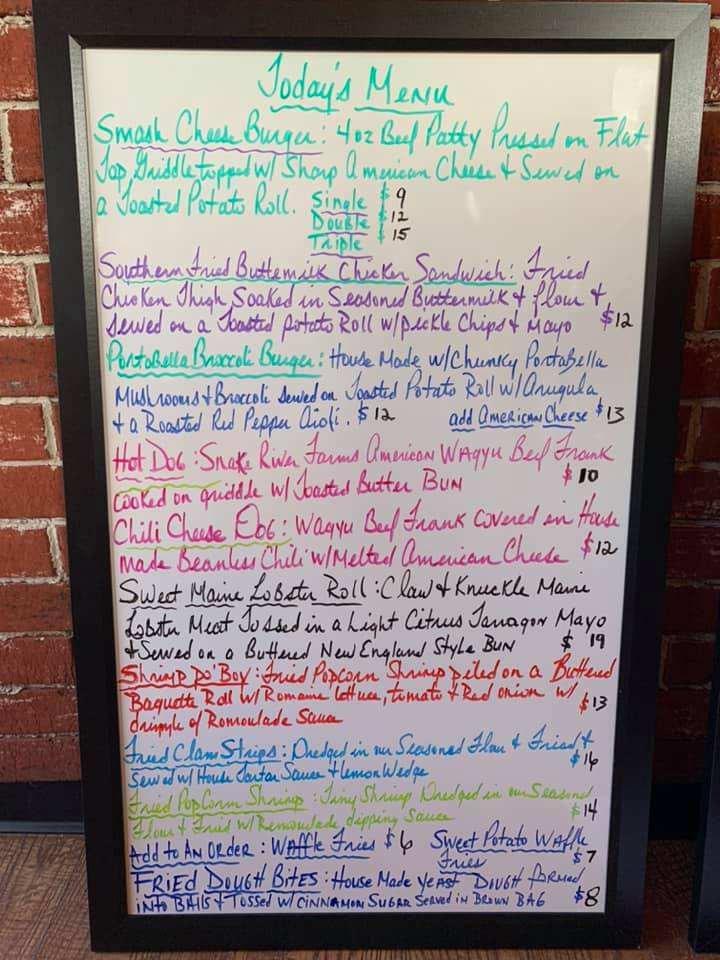 Today's Menu
Smash Cheese Burger: 4oz Beef Patty Pressed on Flat
Top Griddle topped w/ Sharp American Cheese + Served on
a Toasted Potato Roll. Single $9
Double $12
Triple $15
Southern Fried Buttemilk Chicken Sandwich: Fried
Chicken Thigh Soaked in Seasoned Buttermilk + flour +
served on a Toasted potato Roll w/pickle Chips + Mayo $12
PortoBella Broccoli Burger: House Made w/Chunky PortaBella
Mushrooms + Broccoli served on Toasted Potato Roll w/ Arugula
+ a Roasted Red Pepper Aioli. $12 add American Cheese $13
Hot Dog: Snake River Farms American Wagyu Beef Frank
cooked on griddle w/ Toasted Butter Bun $10
Chili Cheese Dog: Wagyu Beef Frank covered in House
made Beanless Chili w/Melted American Cheese $12
Sweet Maine Lobster Roll: Claw + Knuckle Maine
Lobster Meat Tossed in a Light Citrus Tarragon Mayo
+ Served on a Buttered New England Style Bun $19
Shrimp Po'Boy: Fried Popcorn Shrimp piled on a Buttered
Baguette Roll w/ Romaine lettuce, tomato + Red onion w/ $13
drizzle of Romoulade Sauce
Fried Clam Strips: Dredged in our Seasoned Flour + Fried + $16
Served w/ House Tartar Sauce + lemon Wedge
Fried PopCorn Shrimp: Tiny Shrimp Dredged in our Seasoned $14
Flour + Fried w/ Remoulade dipping Sauce
Add to An Order: Waffle Fries $6 Sweet Potato Waffle
Fries $7
Fried Dough Bites: House Made Yeast Dough formed
into Balls + Tossed w/ Cinnamon Sugar Served in Brown Bag $8